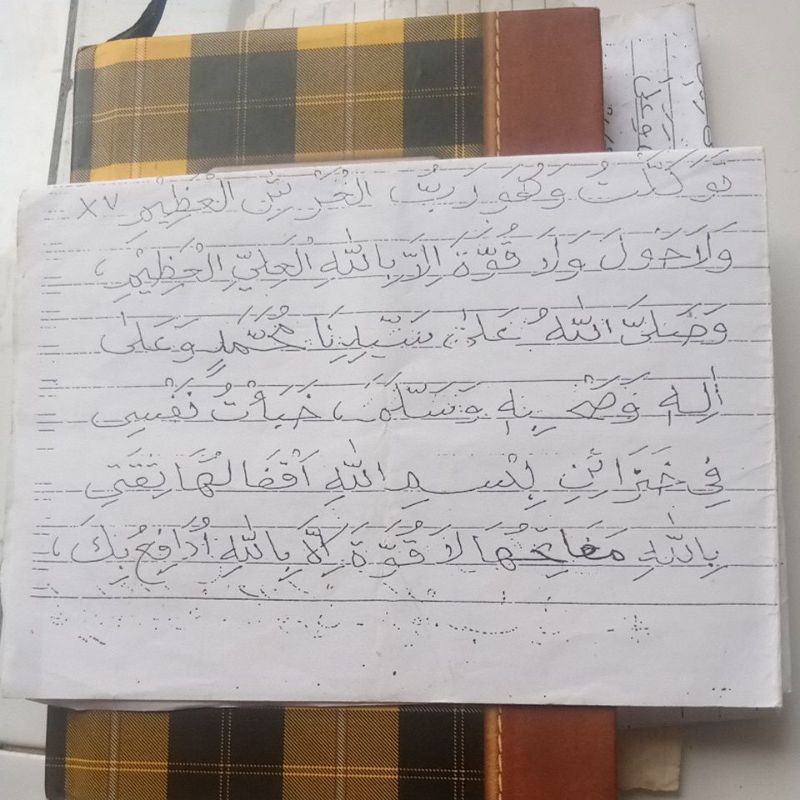 تَوَكَّلْتُ وَهُوَ رَبُّ الْعَرْشِ الْعَظِيْمِ ×٧
وَلَاحَوْلَ وَلَا قُوَّةَ اِلَّا بِاللّٰهِ الْعَلِيِّ الْعَظِيْمِ،
وَصَلَّى اللّٰهُ عَلَى سَيِّدِنَا مُحَمَّدٍ وَعَلٰى
اٰلِهِ وَصَحْبِهِ وَسَلَّمَ، خَبَأْتُ نَفْسِى
فِي خَزَائِنِ بِسْمِ اللّٰهِ اَقْفَالُهَا ثِقَتِي
بِاللّٰهِ مَفَاتِحُهَا لَا قُوَّةَ اِلَّا بِاللّٰهِ اُدَافِعُ بِكَ،